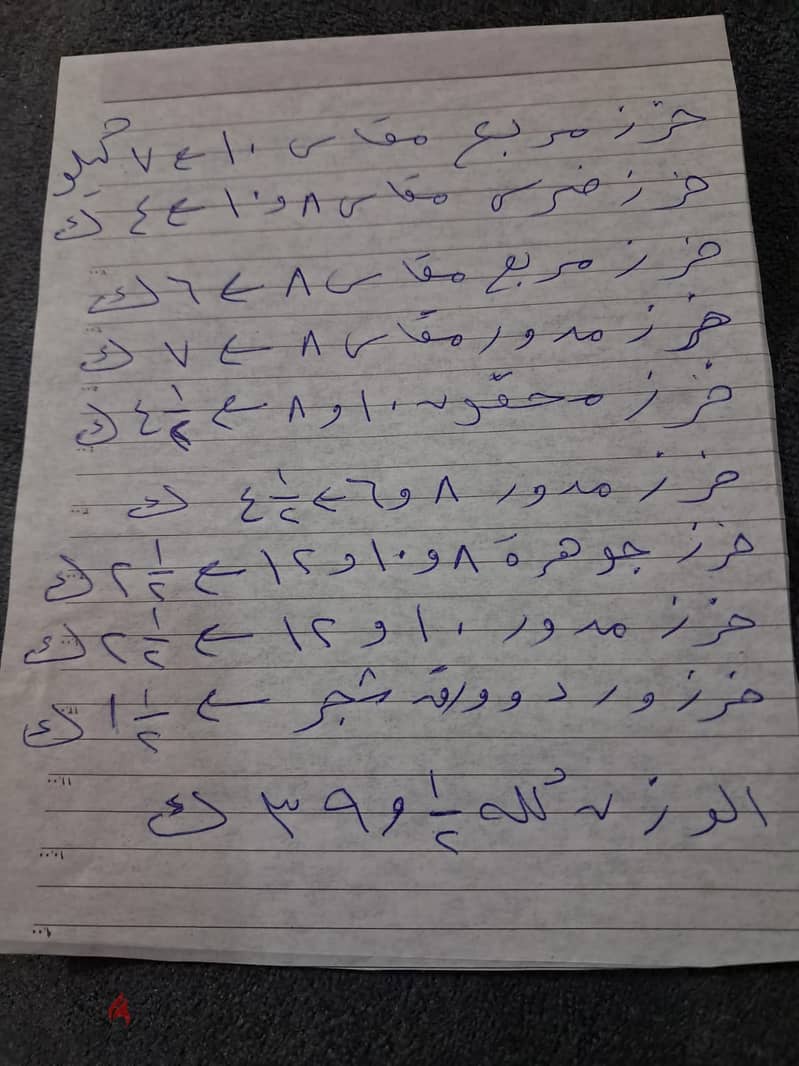 خرز مربع مقاس ١٠ ← ٧ كيلو
خرز ضرس مقاس ٨ و ١٠ ← ٤ ك
خرز مربع مقاس ٨ ← ٦ ك
خرز مدور مقاس ٨ ← ٧ ك
خرز محقون ١٠ و ٨ ← ٤ ١/٢ ك
خرز مدور ٨ و ٦ ← ٤ ١/٢ ك
خرز جوهرة ٨ و ١٠ و ١٢ ← ٢ ١/٢ ك
خرز مدور ١٠ و ١٢ ← ٢ ١/٢ ك
خرز ورد وورق شجر ← ١ ١/٢ ك
الوزن كله ١/٢ و ٣٩ ك